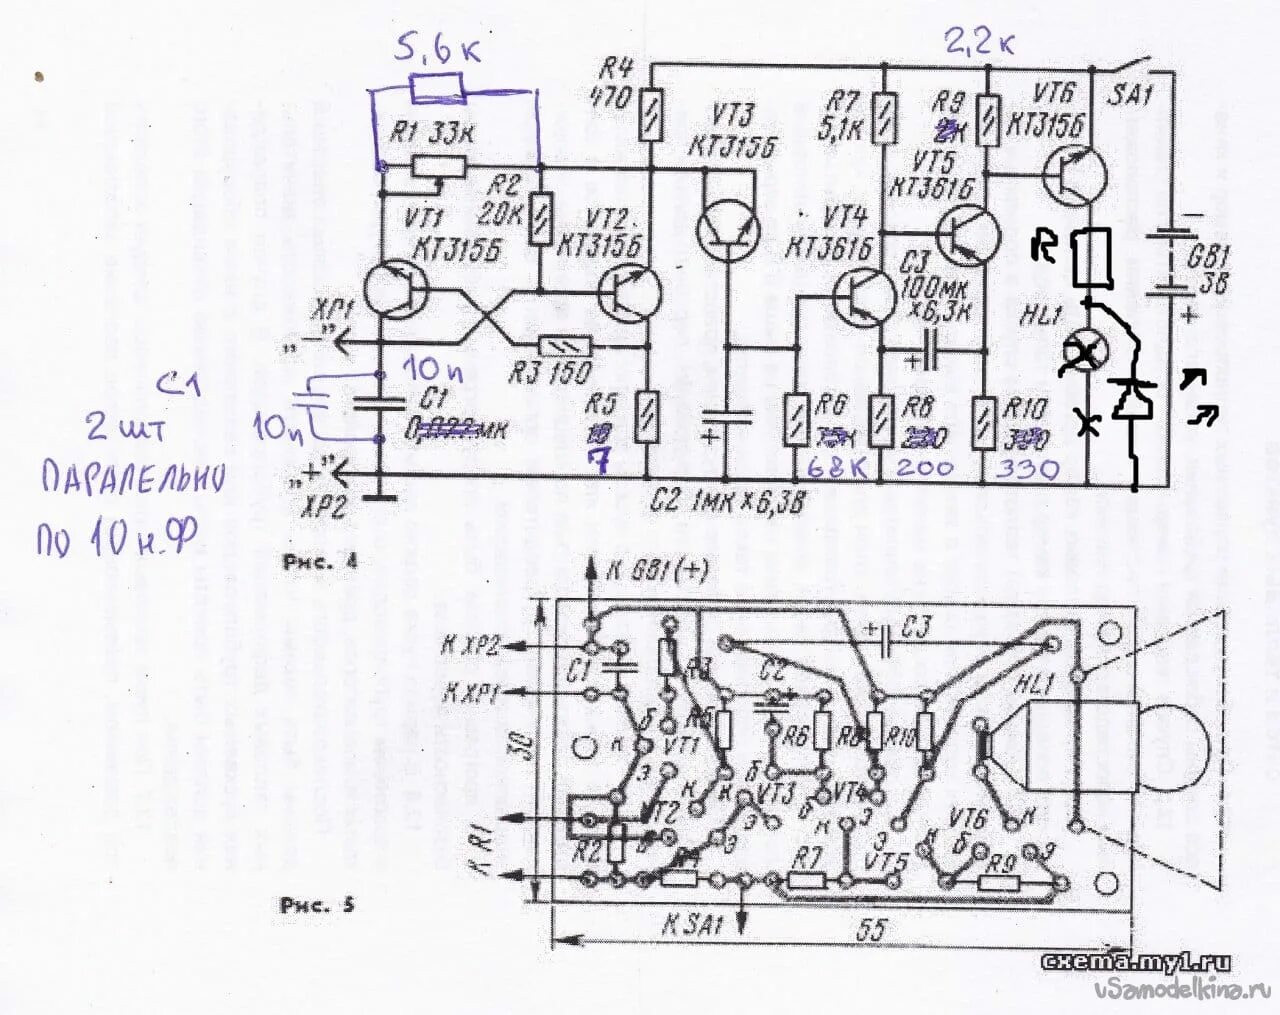 5,6к
2,2к
R4
470
R1 33к
R2
20к
VT1
КТ315Б
VT2
КТ315Б
VT3
КТ315Б
R7
5,1к
R9
VT6
КТ315Б
SA1
VT5
КТ361Б
VT4
КТ361Б
C3
100мк
×6,3к
R
HL1
GB1
3В
−
+
XP1
„−”
R3 150
10п
C1
C1
2 шт
ПАРАЛЕЛЬНО
по 10 н.Ф
10п
0,022мк
R5
7
R6
68К
R8
200
R10
330
+
+
C2 1мк×6,3В
„+”
XP2
Рис. 4
К GB1(+)
К XP2
К XP1
К R1
30
C1
R3
C2
+
+ C3
HL1
R5
R6
R8
R10
б
к
э
VT1
VT2
к
б
э
к
VT3
э
б
б
VT4
э
к
VT5
VT6
к
к
б
э
R2
R4
R7
R9
К SA1
55
Рис. 5
cxema.my1.ru
uSamodelkina.ru